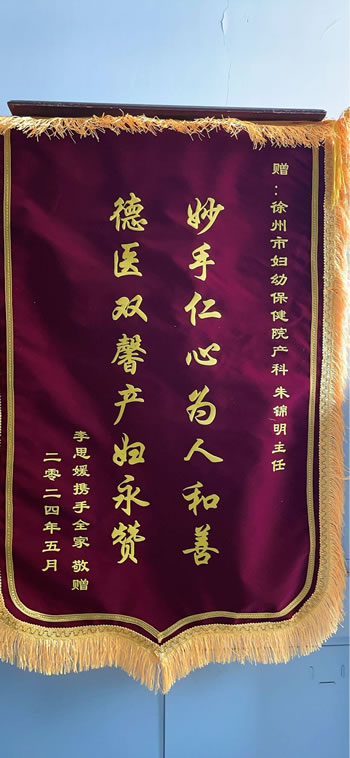 赠：徐州市妇幼保健院产科 朱锦明主任
妙手仁心为人和善
德医双馨产妇永赞
李思媛携手全家 敬赠
二零二四年五月